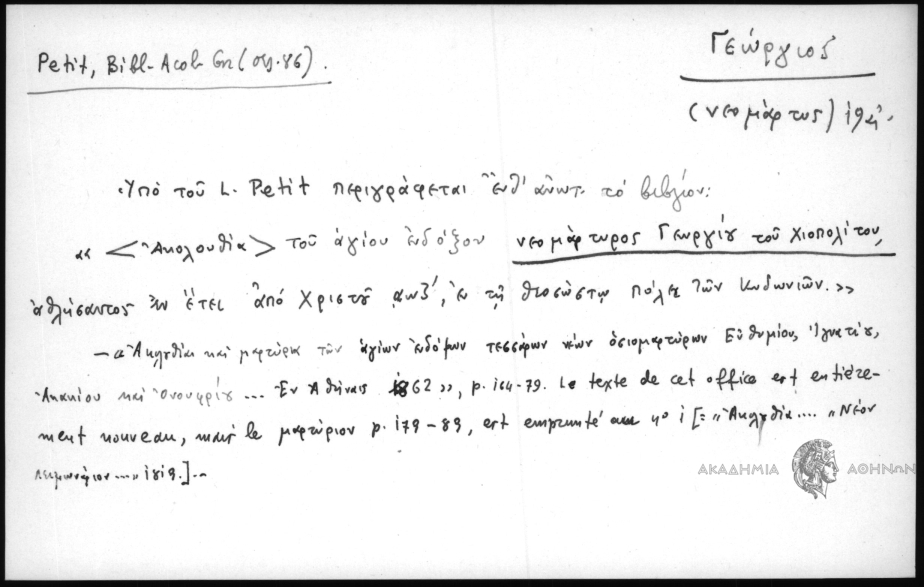 Petit, Bibl. Acol. Gr. (σγ. 86).
Γεώργιος
(νεομάρτυς)
Ὑπὸ τοῦ L. Petit περιγράφεται ἐνθ' ἀνωτ. τὸ βιβλίον:
« <Ἀκολουθία> τοῦ ἁγίου ἐνδόξου νεομάρτυρος Γεωργίου τοῦ Χιοπολίτου,
ἀθλήσαντος ἐν ἔτει ἀπὸ Χριστοῦ ͵αωζ´, ἐν τῇ θεοσώστῳ πόλει τῶν Κυδωνιῶν.»
– «Ἀκολουθίαι καὶ μαρτύρια τῶν ἁγίων ἐνδόξων τεσσάρων νέων ὁσιομαρτύρων Εὐθυμίου, Ἰγνατίου,
Ἀκακίου καὶ Ὀνουφρίου ... Ἐν Ἀθήναις 1862», p. 164-79. Le texte de cet office est entière-
ment nouveau, mais le μαρτύριον p. 179-89, est emprunté au nº 1 [= «Ἀκολουθία.... «Νέον
Λειμωνάριον...» 1819.].–
ΑΚΑΔΗΜΙΑ ΑΘΗΝΩΝ